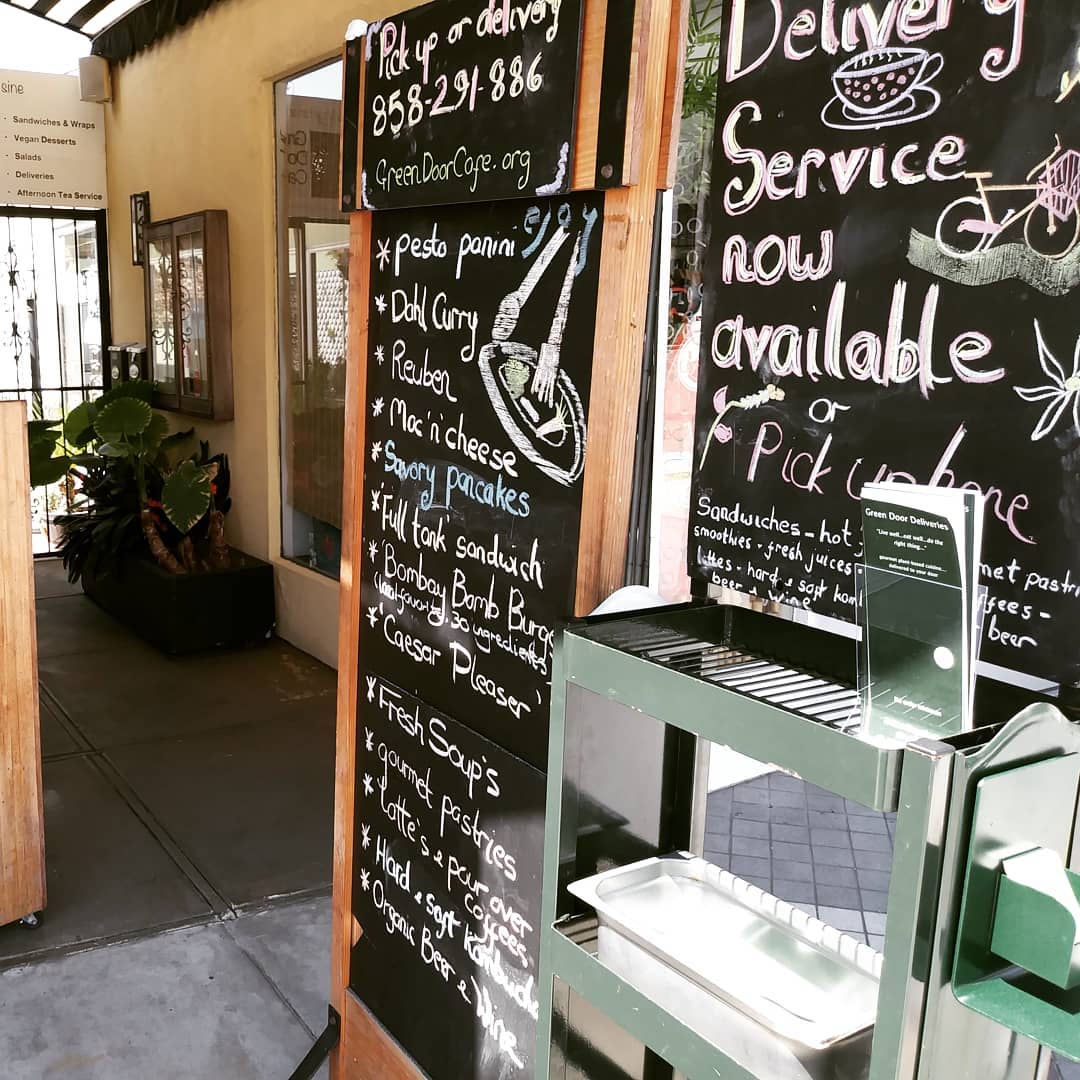 sine
· Sandwiches & Wraps
· Vegan Desserts
· Salads
· Deliveries
· Afternoon Tea Service
Pick up or delivery
858-291-886
GreenDoorCafe.org
* pesto panini
* Dahl Curry
* Reuben
* Mac'n'cheese
* Savory pancakes
* 'Full tank' sandwich
* 'Bombay Bomb Burge
(local favorite, 30 ingredients
* 'Caesar Pleaser'
* Fresh Soup's
* gourmet pastries
* latte's & pour over
coffees
* Hard & soft Kombucha
* Organic Beer & Wine
Delivery
Service
now
available
or
Pick up here
Sandwiches - hot
smoothies - fresh juices met pastri
lattes - hard & soft kom ffees -
beer & wine beer
Green Door Deliveries
"Live well...eat well...do the
right thing..."
gourmet plant-based cuisine...
delivered to your door